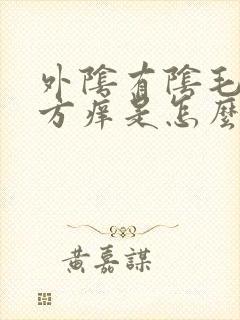 外陰有陰毛
方痒是怎麼
黃嘉謀